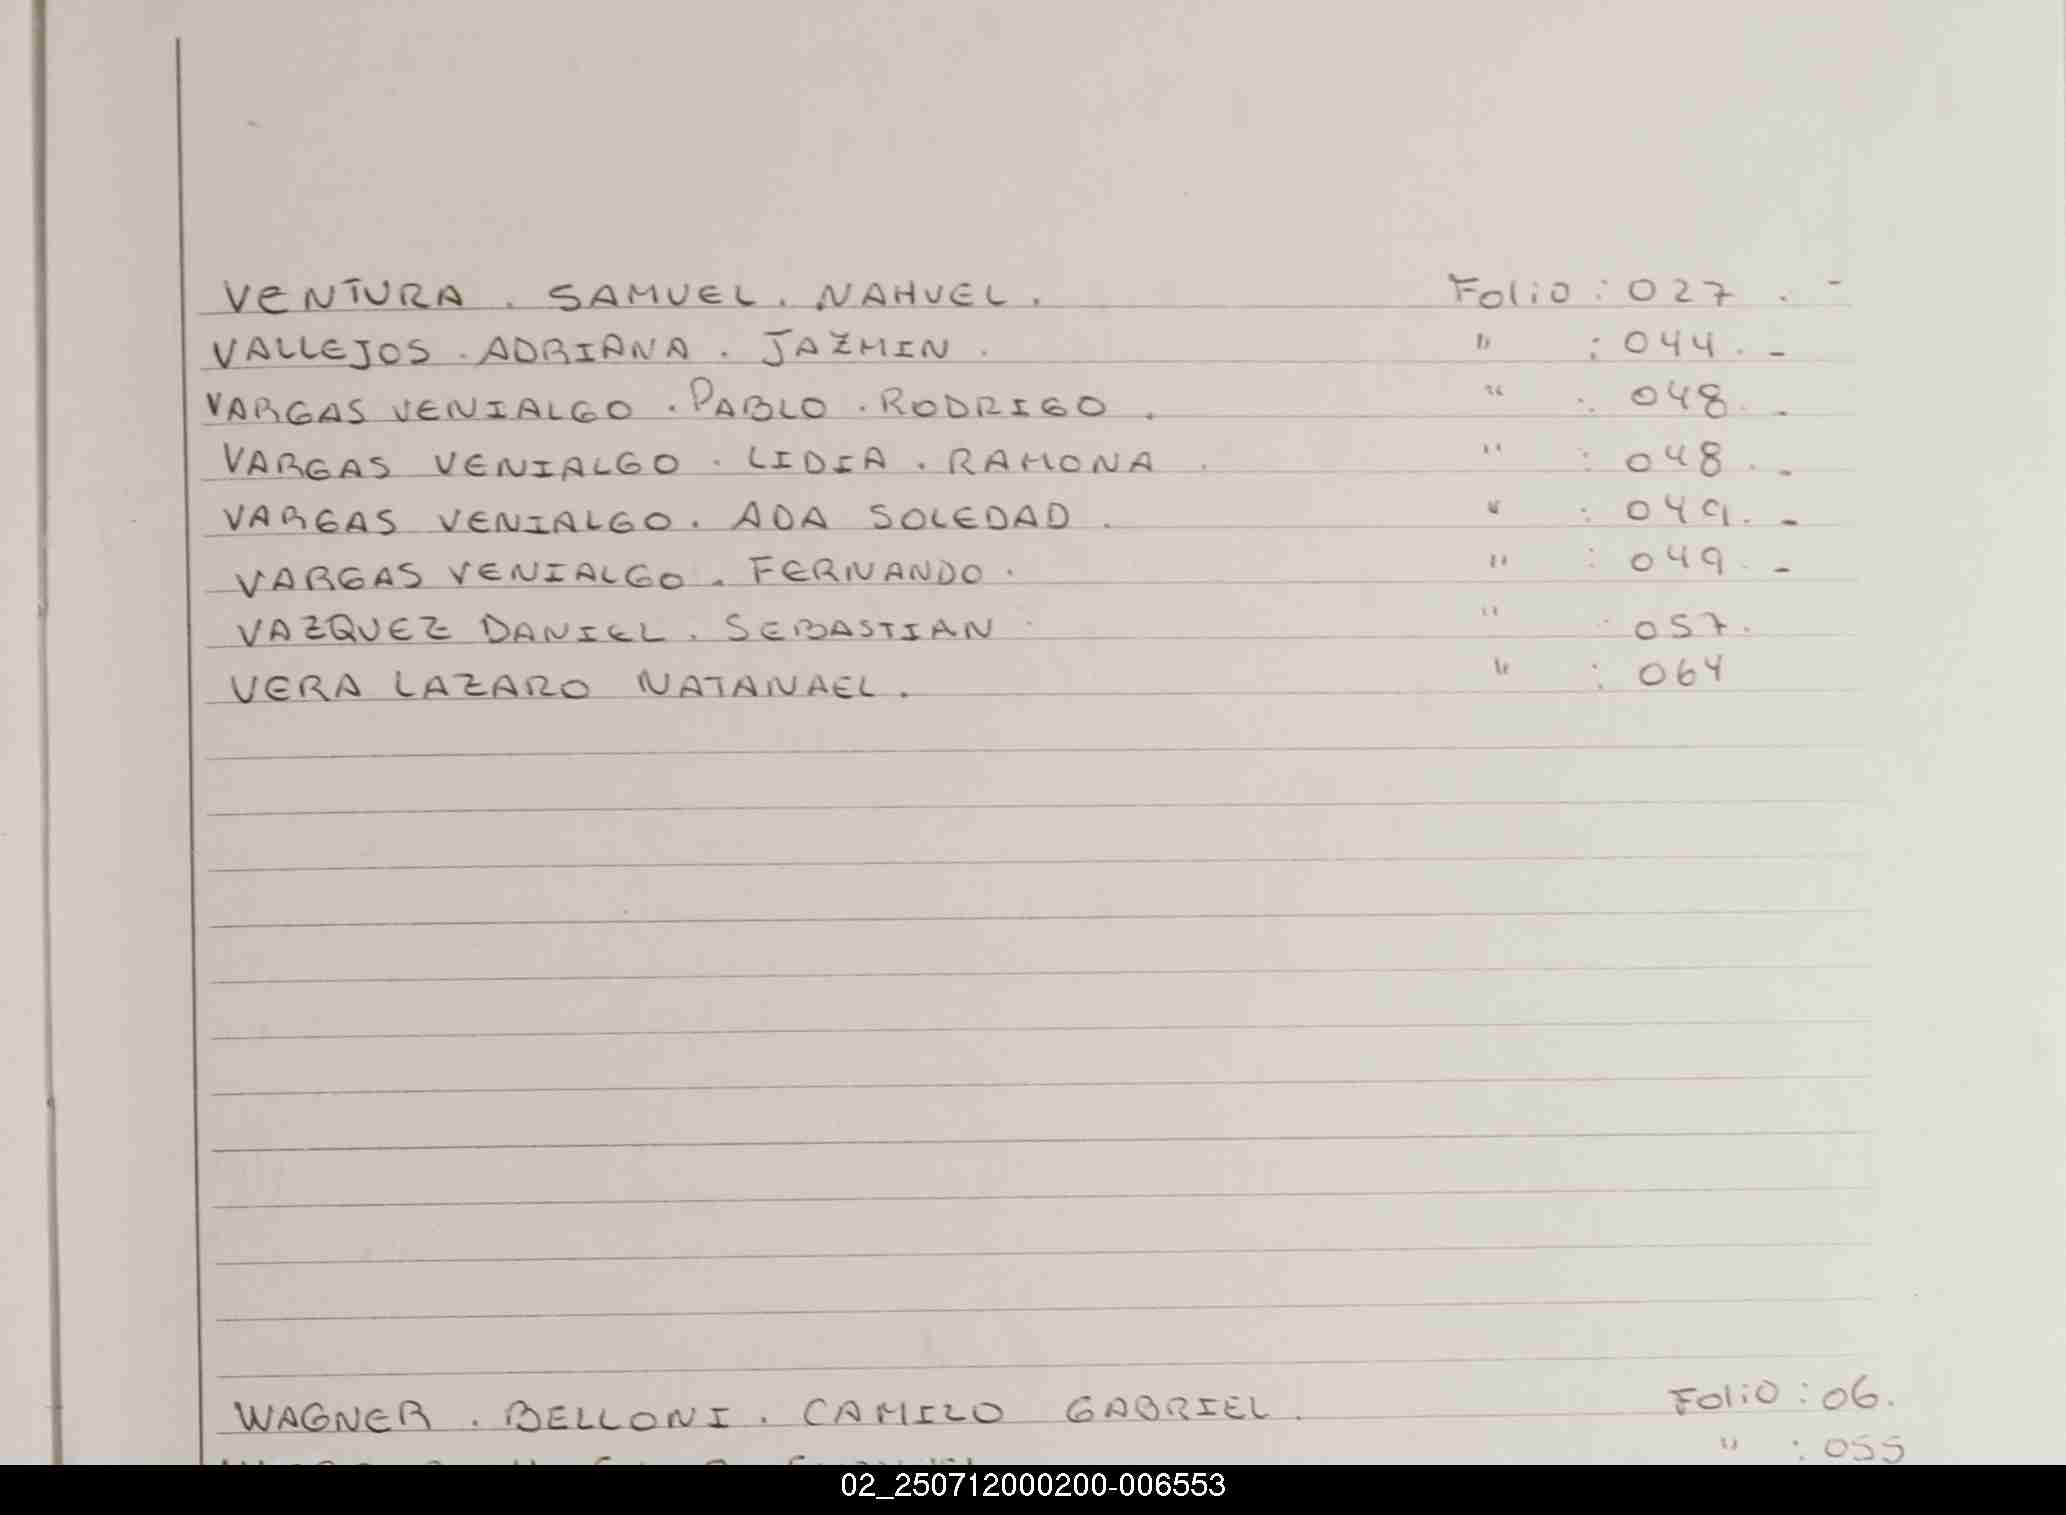 VENTURA . SAMUEL . NAHUEL . Folio : 027 . -
VALLEJOS . ADRIANA . JAZMIN . " : 044 . -
VARGAS VENIALGO . PABLO . RODRIGO . " : 048 . -
VARGAS VENIALGO . LIDIA . RAMONA . " : 048 . -
VARGAS VENIALGO . ADA SOLEDAD . " : 049 . -
VARGAS VENIALGO . FERNANDO . " : 049 . -
VAZQUEZ DANIEL . SEBASTIAN . " : 057 .
VERA LAZARO NATANAEL . " : 064
WAGNER . BELLONI . CAMILO GABRIEL . Folio : 06 .
" : 055
02_250712000200-006553